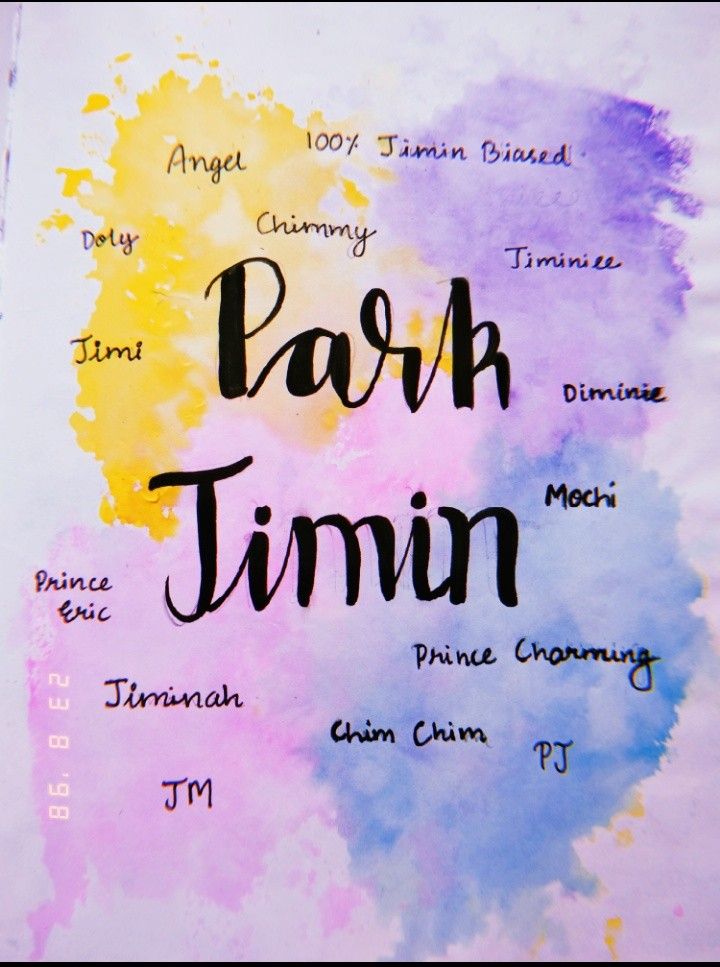 Angel
100% Jimin Biased
Doly
Chimmy
Jiminiee
Park
Jimi
Diminie
Jimin
Mochi
Prince
Eric
Prince Charming
Jiminah
Chim Chim
PJ
JM